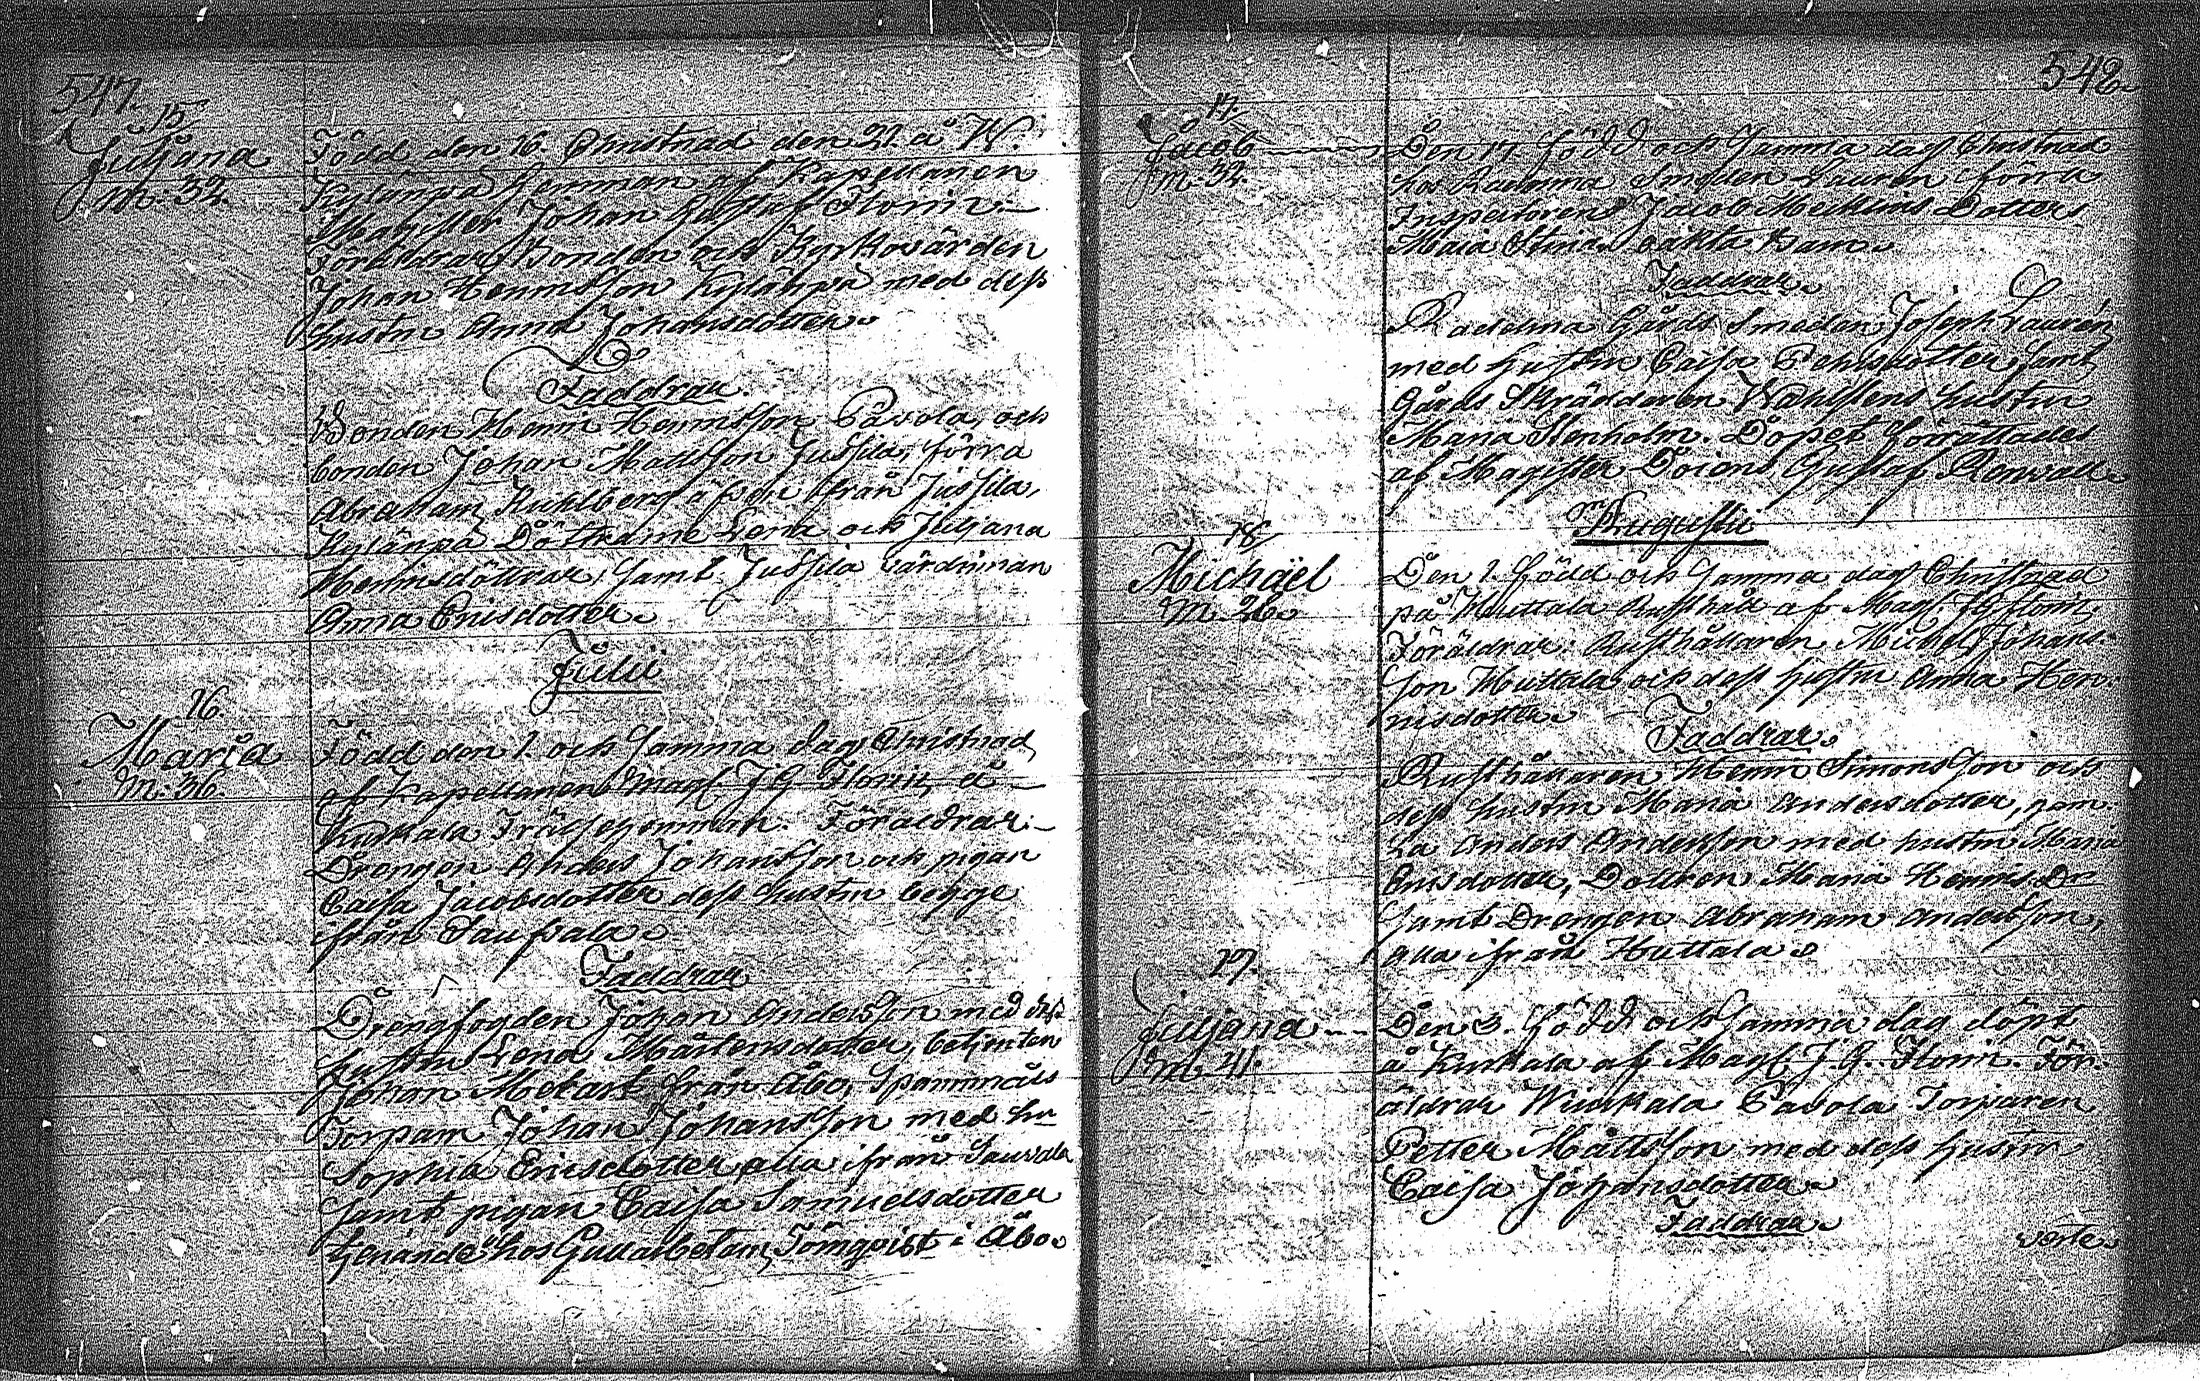 547.
15.
Juljana
M. 32.
Född den 16. Christnad den 21. å W.
Kylänpä hemman af Kapellanen
Magister Johan Gustaf Florin.
Föräldrar Bonden och Kyrkovärden
Johan Henrisson Kylänpä med dess
hustru Anna Johansdotter.
Faddrar.
Bonden Henrik Henrisson Pavola, och
bonden Johan Mattsson Jussila, förra
Abraham Kuhlberg äfven ifrån Jussila,
Kylänpä Döttrarne Lena och Juljana
Henrisdöttrar, samt Jussila värdinnan
Anna Ericsdotter.
Julii
16.
Maria
M. 36.
Född den 1. och samma dag Christnad
af Kapellanen Mag. J G Florin, å
Kurkala hemman. Föräldrar:
Drengen Anders Johansson och pigan
Caisa Jacobsdotter dess hustru begge
ifrån
Faddrar
Drengfogden Johan Andersson med dess
hustru Lena Mårtensdotter, betjenten
Johan från Åbo, Spannmåls
Torparn Johan Johansson med hu
Sophia Ericsdotter, alla ifrån
samt pigan Caisa Samuelsdotter
tjenande hos Gullarbetarn Törnqvist i Åbo.
542.
17.
Jacob
M. 32.
Den 17. född och samma dag Christnad
hos Radelma Smeden Lauren, förra
Inspectorens Jacob Mechlins Dotters
Maja Stinas oäkta barn.
Faddrar.
Radelma Gårds Smeden Joseph Lauren
med hustru Caisa Henrisdotter, samt
Gårds Skräddaren Wahlstens hustru
Maria Stenholm. Dopet förrättades
af Magister Gustaf Renvall.
Augusti
18.
Michäel
M. 26.
Den 1. född och samma dag Christnad
på Huttala Rusthåll af Mag. J G Florin,
Föräldrar: Rusthållaren Michel Johans-
son Huttala och dess hustru Anna Hen-
risdotter.
Faddrar.
Rusthållaren Henrik Simonsson och
dess hustru Maria Andersdotter, gam-
la Anders Andersson med hustru Maria
Ericsdotter, Dottren Maria Henris Dr
samt Drengen Abraham Andersson,
alla ifrån Huttala.
19.
Juljana
M. 41.
Den 3. född och samma dag döpt
å Kurkala af Mag. J. G. Florin. För-
äldrar Pavola Torparen
Petter Mattsson med dess hustru
Caisa Johansdotter.
Faddrar.
verte.